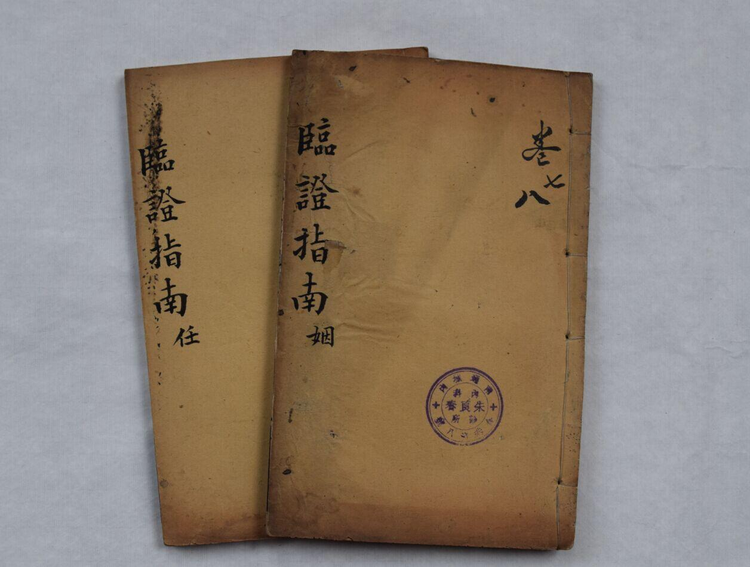 臨證指南
任
臨證指南
姻
卷七
八
朱良春